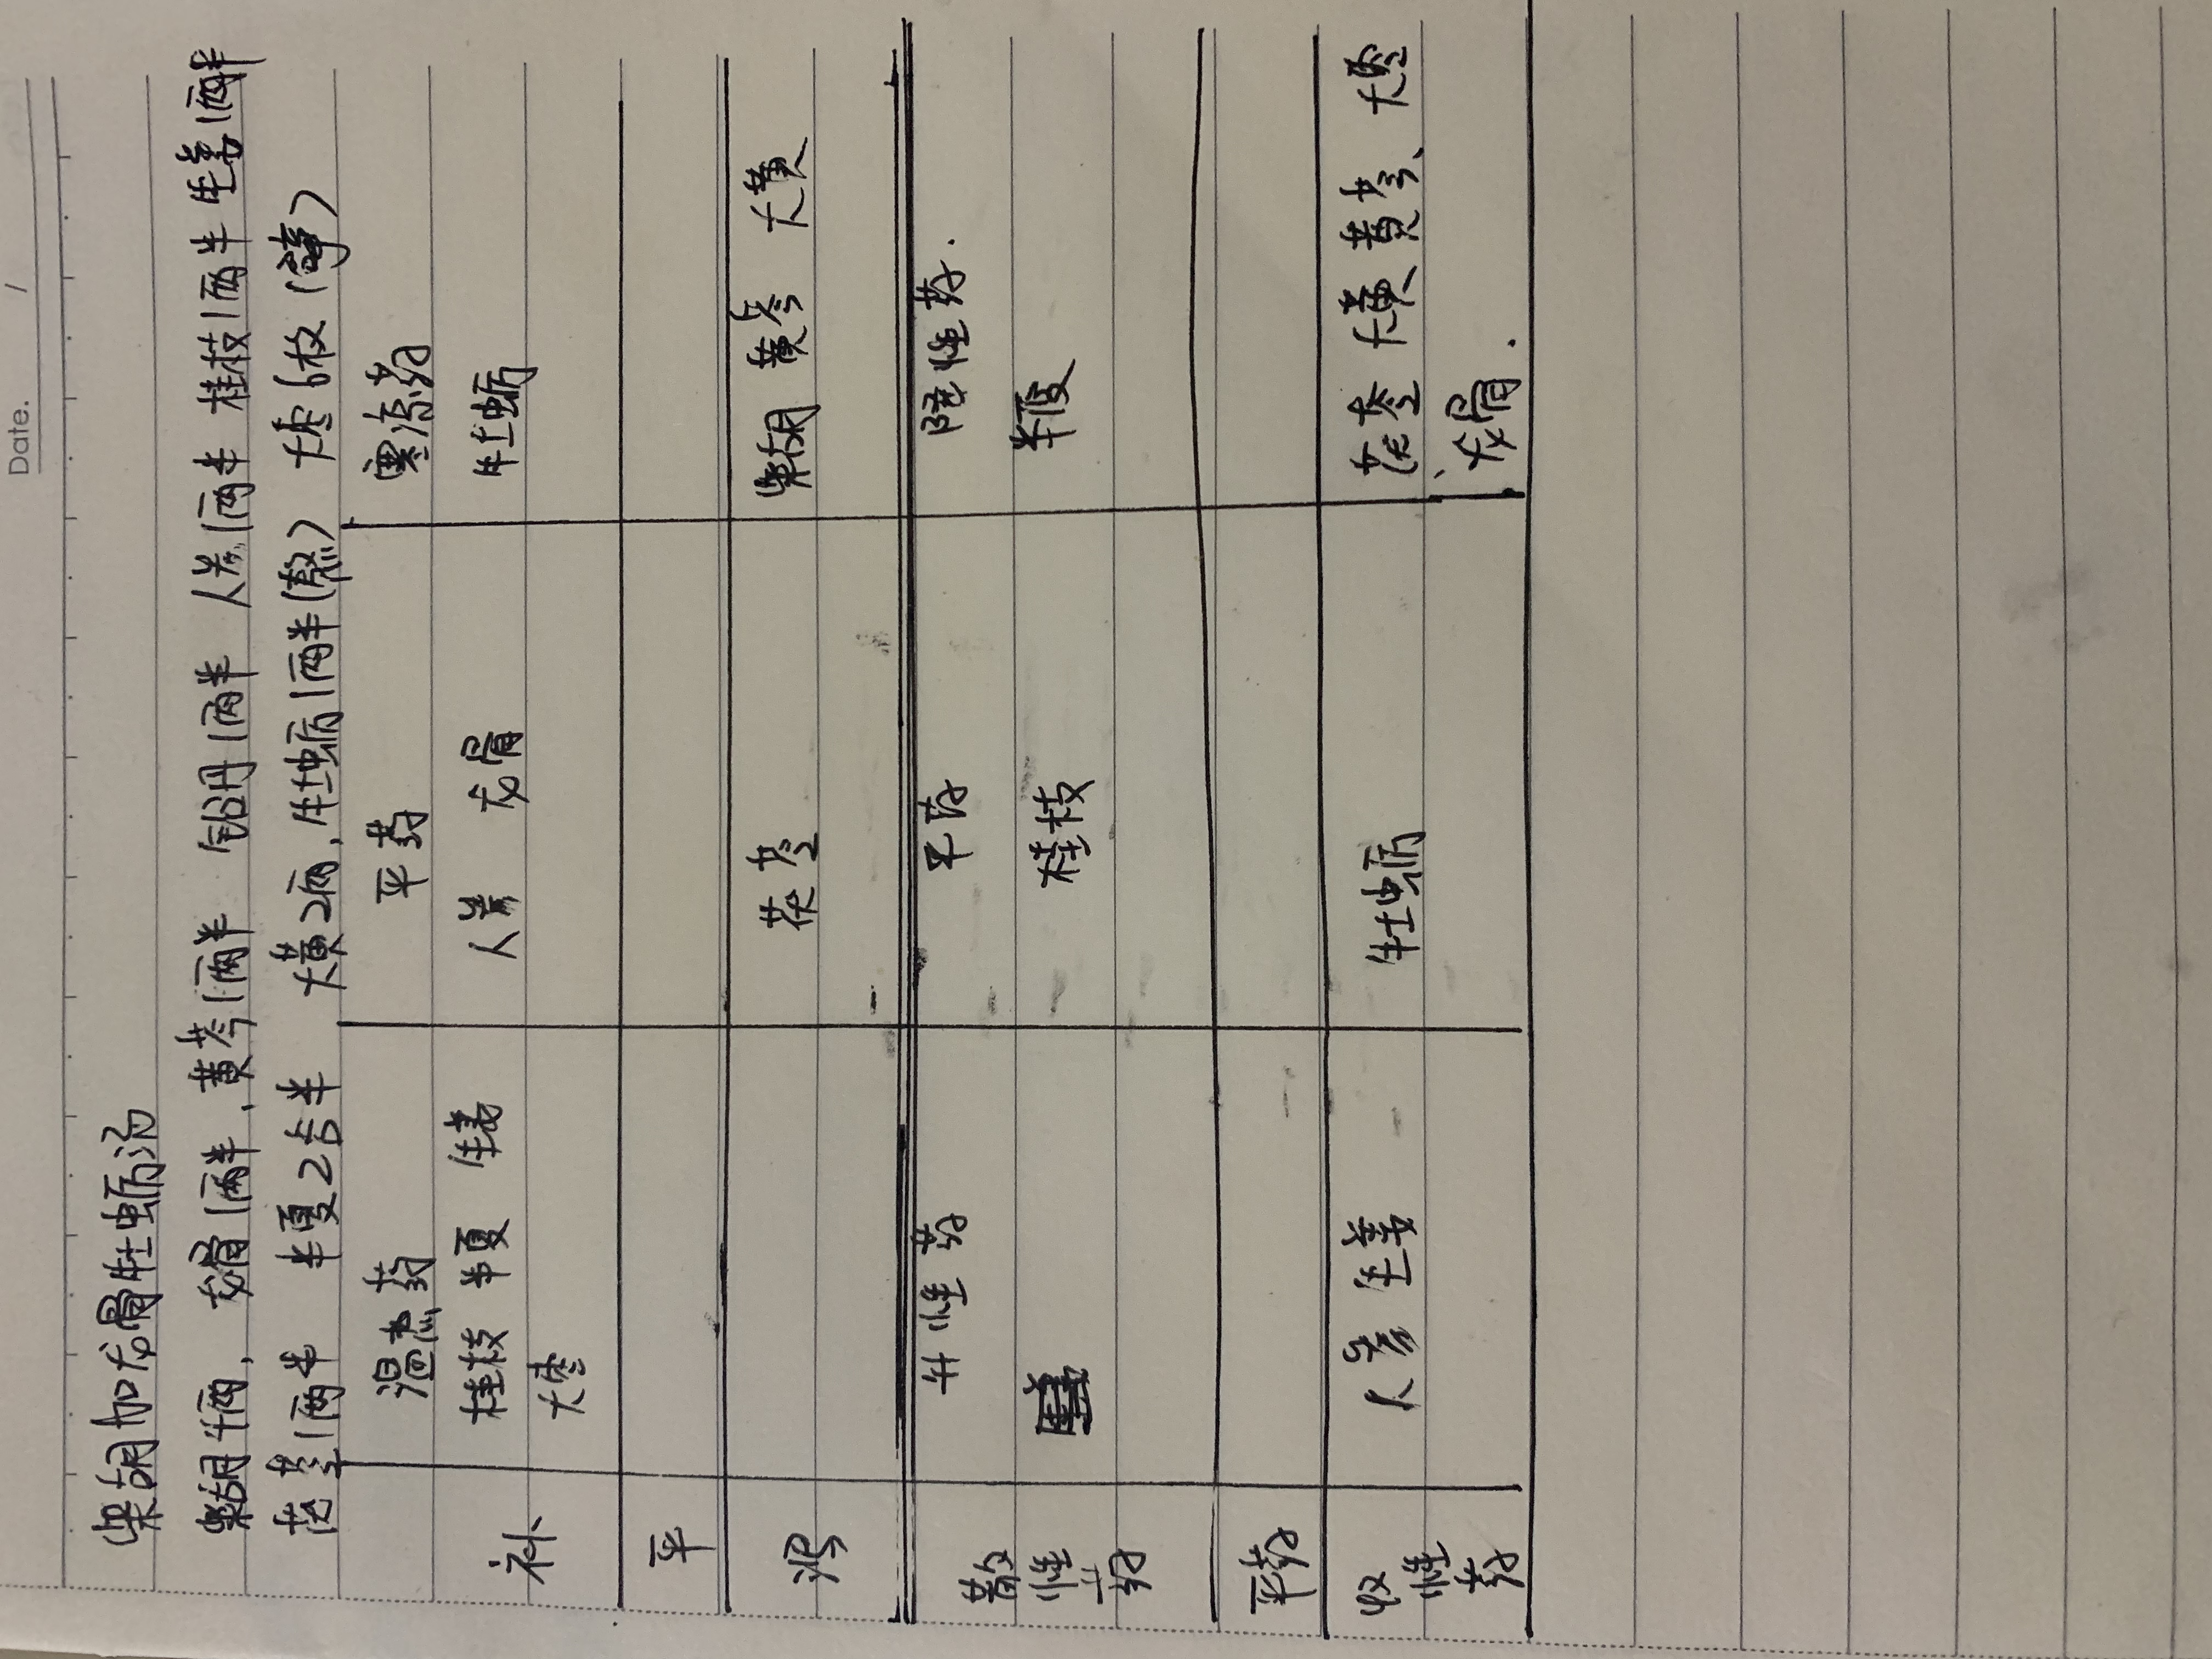 Date. /
柴胡加龙骨牡蛎汤
柴胡4两, 龙骨1两半, 黄芩1两半 铅丹1两半 人参1两半 桂枝1两半 生姜1两半
茯苓1两半 半夏2合半 大黄2两, 牡蛎1两半(熬) 大枣6枚(擘)
温热药 平药 寒凉药
补 桂枝 半夏 生姜 人参 龙骨 牡蛎
大枣
平
泻 茯苓 柴胡 黄芩 大黄
升性药 平药 降性药.
散性药 桂枝 半夏
平药
收性药 人参 生姜 牡蛎 茯苓 大黄 黄芩、大枣
、龙骨.